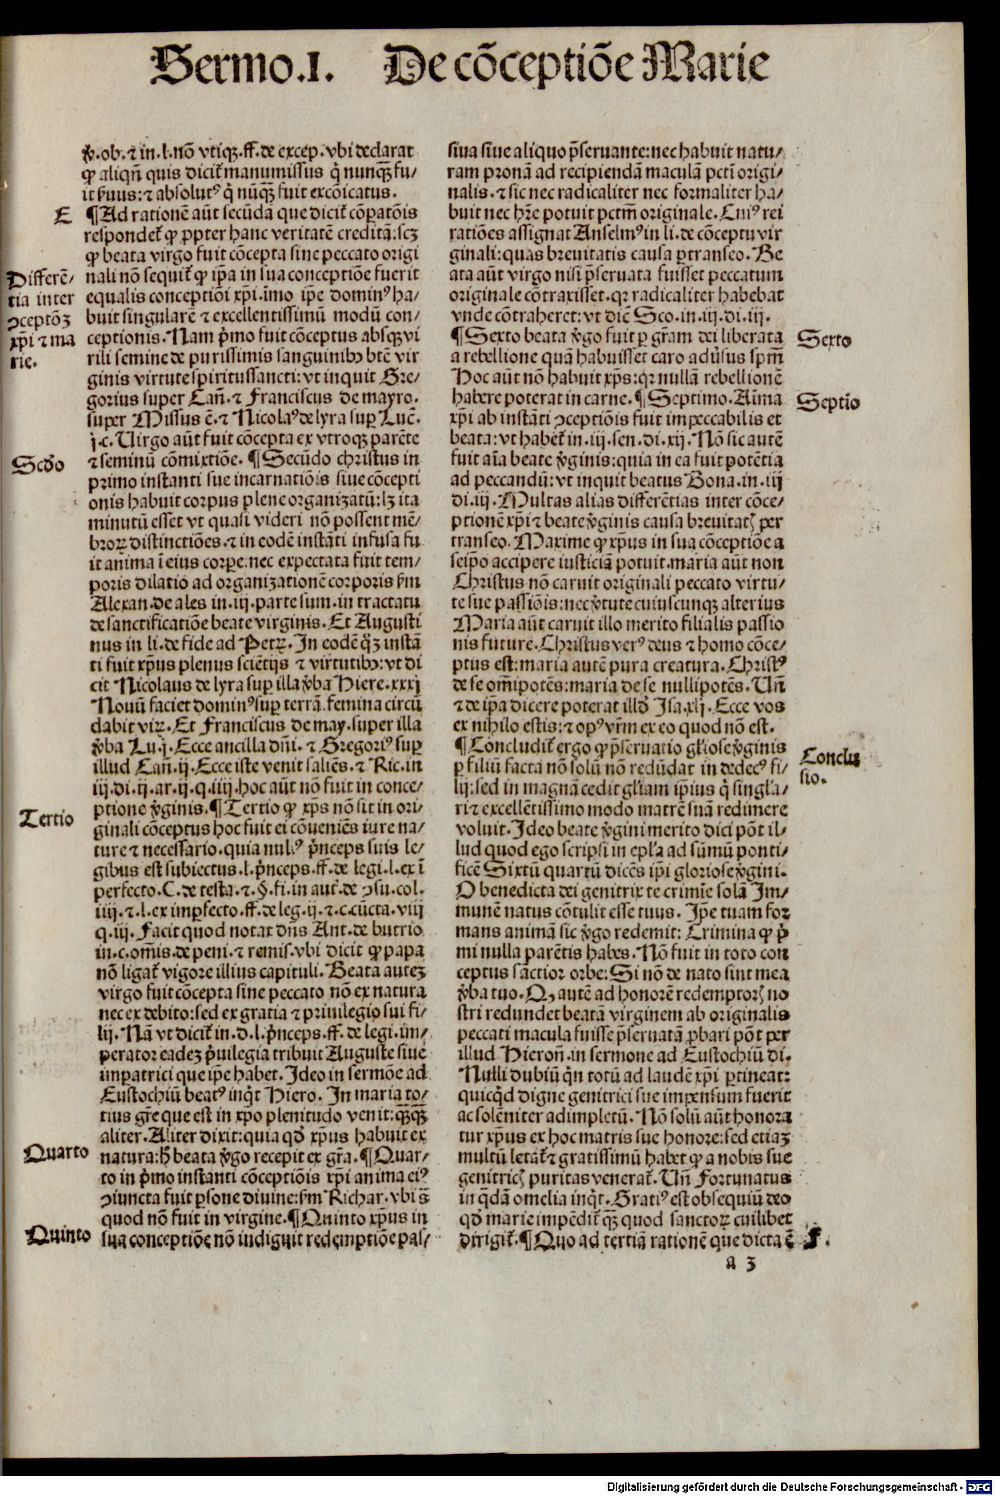 Sermo.I. De cōceptiōe Marie
ꝟ.ob.⁊ in.l.nō vtiqꝫ.ff.de excep.vbi declarat
ꝙ aliqñ quis dicit᷑ manumissus q̇ nunqꝫ̄ fu⸗
it ẜuus:⁊ absolutꝰ q̇ nūqꝫ̄ fuit excōicatus.
E
¶Ad rationē aūt secūdā que dicit᷑ cōꝑatōis
respondet᷑ ꝙ ꝓpter hanc veritatē creditā:scꝫ
ꝙ beata virgo fuit cōcepta sine peccato origi
Differē⸗
tia inter
ↄceptōꝫ
xp̄i ⁊ ma
rie.
nali nō sequit᷑ ꝙ ip̄a in sua conceptiōe fuerit
equalis conceptiōi xp̄i.īmo ip̄e dominꝰ ha⸗
buit singularē ⁊ excellentissimū modū con⸗
ceptionis.Nam p̄mo fuit cōceptus absqꝫ vi
rili semine de purissimis sanguinibꝫ btē vir
ginis virtute spiritussancti:vt inquit Gre⸗
gorius super Cañ.⁊ Franciscus de mayro.
super Missus ē.⁊ Nicolaꝰ de lyra suꝑ Luc̄.
j.c.Uirgo aūt fuit cōcepta ex vtroqꝫ parēte
Scd̄o
⁊ seminū cōmixtiōe.¶Secūdo christus in
primo instanti sue incarnatiōis siue cōcepti
onis habuit corpus plene organizatū:lꝫ ita
minutū esset vt quasi videri nō possent mē⸗
broꝝ distinctiōes.⁊ in eodē instāti infusa fu
it anima ī eius corpe:nec expectata fuit tem⸗
poris dilatio ad organizationē corporis ẜm
Alexan.de ales in.iij.parte sum.in tractatu
de sanctificatiōe beate virginis.Et Augusti
nus in li.de fide ad Petꝝ.In eodē qͦꝫ instā
ti fuit xp̄us plenus sciētijs ⁊ virtutibꝫ:vt di
cit Nicolaus de lyra suꝑ illa ꝟba Hiere.xxxj
Nouū faciet dominꝰ suꝑ terrā.femina circū
dabit viꝝ.Et Franciscus de may.super illa
ꝟba Lu.j.Ecce ancilla dn̄i.⁊ Gregoriꝰ suꝑ
illud Cañ.ij.Ecce iste venit saliēs.⁊ Ric.in
iij.di.ij.ar.ij.q.iiij.hoc aūt non fuit in conce⸗
Tertio
ptione ꝟginis.¶Tertio ꝙ xp̄s nō sit in ori⸗
ginali cōceptus hoc fuit ei cōueniēs iure na⸗
ture ⁊ necessario.quia nulꝰ p̄nceps suis le⸗
gibus est subiectus.l.p̄nceps.ff.de legi.l.ex ī
perfecto.C.de testa.⁊.§.fi.in auc̄.de ↄsu.col.
iiij.⁊.l.ex imperfecto.ff.de leg.ij.⁊.c.cūcta.viiij
q.iij.Facit quod notat dn̄s Ant.de butrio
in.c.om̄is.de peni.⁊ remis.vbi dicit ꝙ papa
nō ligat᷑ vigore illius capituli.Beata auteꝫ
virgo fuit cōcepta sine peccato nō ex natura
nec ex debito:sed ex gratia ⁊ priuilegio sui fi⸗
lij.Nā vt dicit᷑ in.d.l.p̄nceps.ff.de legi.im⸗
perator eadeꝫ p̄uilegia tribuit Auguste siue
impatrici que ip̄e habet.Ideo in sermōe ad
Eustochiū beatꝰ inq̇t Hiero.In maria to⸗
tius gr̄e que est in xp̄o plenitudo venit:qꝫ̄qꝫ̄
aliter.Aliter dixit:quia qd̄ xp̄us habuit ex
Quarto
natura:hͦ beata ꝟgo recepit ex gr̄a.¶Quar⸗
to in p̄mo instanti cōceptiōis xp̄i anima eiꝰ
ↄiuncta fuit ꝑsone diuine:ẜm Richar.vbi s̄
quod nō fuit in virgine.¶Quinto xp̄us in
Quinto
sua conceptiōe nō indiguit redemptiōe pas⸗
siua siue aliquo p̄seruante:nec habuit natu⸗
ram pronā ad recipiendā maculā pctī origi⸗
nalis.⁊ sic nec radicaliter nec formaliter ha⸗
buit nec hr̄e potuit pctm̄ originale.Cuiꝰ rei
ratiōes assignat Anselmꝰ in li.de cōceptu vir
ginali:quas breuitatis causa ꝑtranseo.Be
ata aūt virgo nisi p̄seruata fuisset peccatum
originale cōtraxisset.qꝛ radicaliter habebat
vnde cōtraheret:vt dic̄ Sco.in.iij.di.iij.
Sexto
¶Sexto beata ꝟgo fuit ꝑ gr̄am dei liberata
a rebellione quā habuisset caro aduꝰsus sp̄m
Hoc aūt nō habuit xp̄s:qꝛ nullā rebellionē
Septio
habere poterat in carne.¶Septimo.Aīma
xp̄i ab instāti ↄceptiōis fuit impeccabilis et
beata:vt habet᷑ in.iij.sen.di.xij.Nō sic autē
fuit aīa beate ꝟginis:quia in ea fuit potētia
ad peccandū:vt inquit beatus Bona.in.iij
di.iij.Multas alias differētias inter cōce⸗
ptionē xp̄i ⁊ beate ꝟginis causa breuitatꝭ per
transeo.Maxime ꝙ xp̄us in sua cōceptiōe a
seip̄o accipere iusticiā potuit.maria aūt non
Christus nō caruit originali peccato virtu⸗
te sue passiōis:nec ꝟtute cuiuscunqꝫ alterius
Maria aūt caruit illo merito filialis passio
nis future.Christus verꝰ deus ⁊ homo cōce⸗
ptus est:maria autē pura creatura.Christꝰ
de se om̄ipotēs:maria de se nullipotēs.Uñ
⁊ de ip̄a dicere poterat illd̄ Isa.xlj.Ecce vos
ex nihilo estis:⁊ opꝰ vr̄m ex eo quod nō est.
Conclu
sio.
¶Concludit᷑ ergo ꝙ p̄seruatio gl̄iose ꝟginis
ꝑ filiū facta nō solū nō redūdat in dedecꝰ fi⸗
lij:sed in magnā cedit gl̄iam ip̄ius q̇ singl̄a⸗
ri ⁊ excellētissimo modo matrē suā redimere
voluit.Ideo beate ꝟgini merito dici pōt il⸗
lud quod ego scripsi in epl̄a ad sūmū ponti⸗
ficē Sixtū quartū dicēs ip̄i gloriose ꝟgini.
O benedicta dei genitrix te crimīe solā Im⸗
munē natus cōtulit esse tuus. Ip̄e tuam for
mans animā sic ꝟgo redemit: Crimina ꝙ p̄
mi nulla parētis habes. Nō fuit in toto con
ceptus sāctior orbe: Si nō de nato sint mea
ꝟba tuo. Qꝙ autē ad honorē redemptorꝭ no
stri redundet beatā virginem ab originalis
peccati macula fuisse p̄seruatā ꝓbari pōt per
illud Hieroñ.in sermone ad Eustochiū di.
Nulli dubiū q̄n totū ad laudē xp̄i ꝑtineat:
quicq̇d digne genitrici sue impensum fuerit
ac solēniter adimpletū. Nō solū aūt honora
tur xp̄us ex hoc matris sue honore:sed etiaꝫ
multū letat᷑ ⁊ gratissimū habet ꝙ a nobis sue
genitricꝭ puritas venerat᷑.Uñ Fortunatus
in qͣdā omelia inq̇t.Gratiꝰ est obsequiū deo
qd̄ marie impēdit᷑ qꝫ̄ quod sanctoꝝ cuilibet
F.
dirigit᷑.¶Quo ad tertiā rationē que dicta ē
a 3
Digitalisierung gefördert durch die Deutsche Forschungsgemeinschaft - DFG